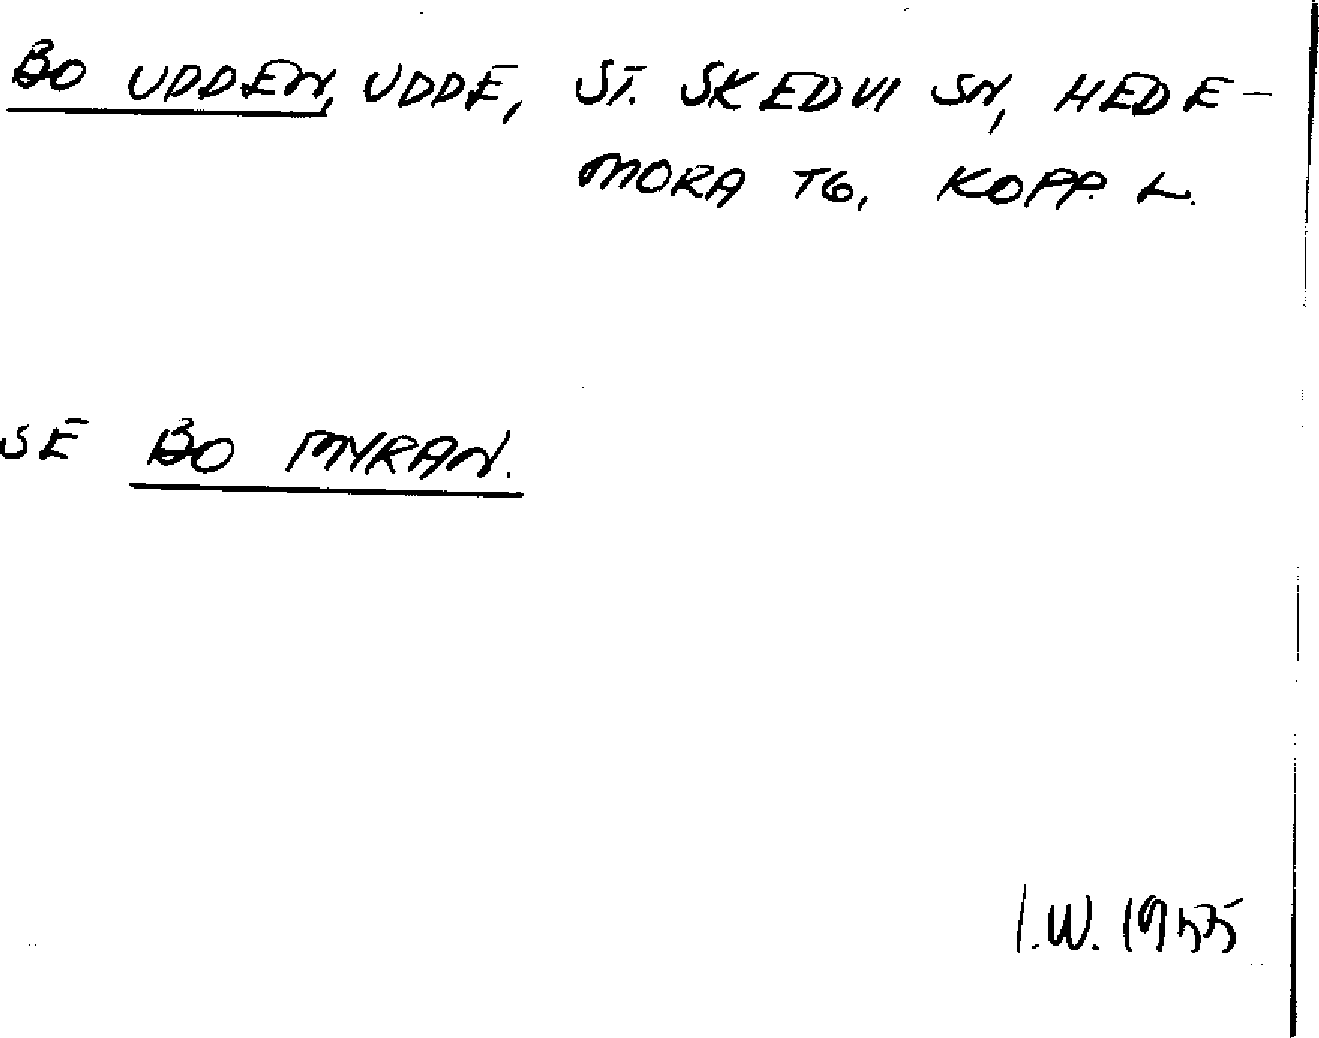 BO UDDEN, UDDE, ST. SKEDVI SN, HEDE-
MORA TG, KOPP. L.
SE BO MYRAN.
I.W. 1955